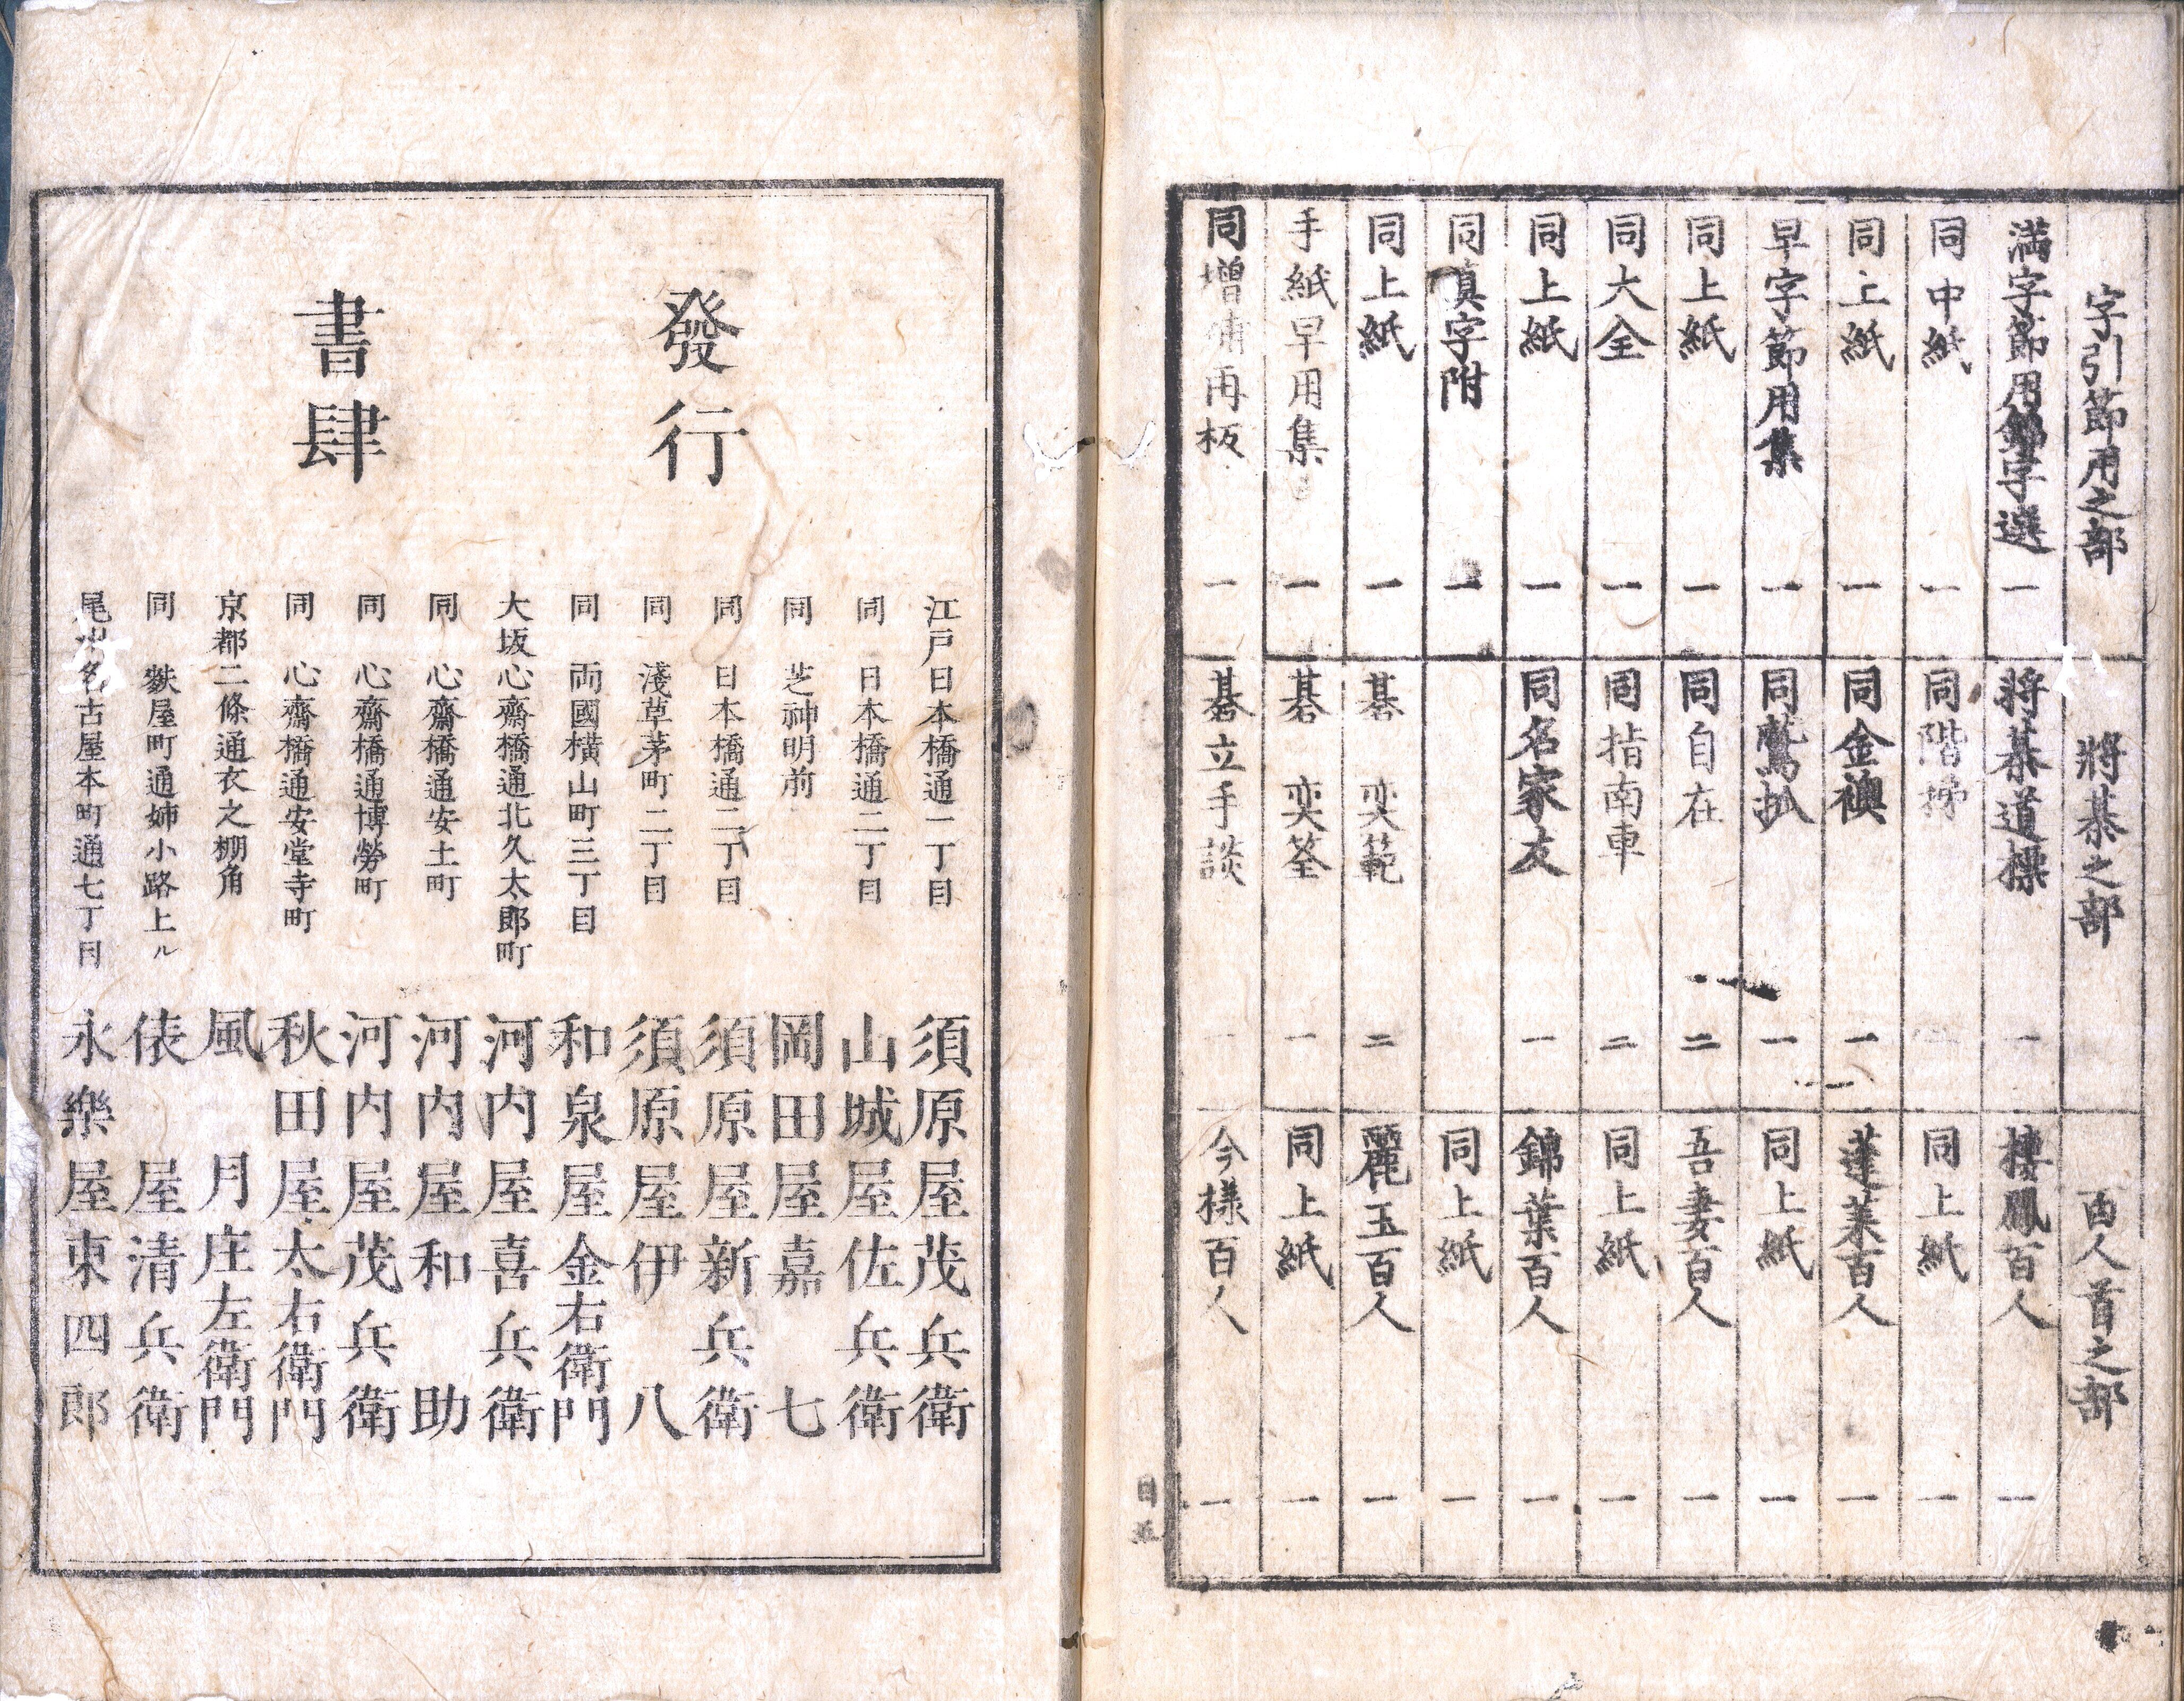 字引節用之部
満字節用錦字選 一
同中紙 一
同上紙 一
早字節用集 一
同上紙 一
同大全 一
同上紙 一
同真字附 一
同上紙 一
手紙早用集 一
同増補再板 一
將棊之部
將棊道標 一
同階梯
同金襖 一
同鸞抓 一
同自在 二
同指南車 二
同名家友 一
碁 奕範 二
碁 奕筌 一
碁立手談 一
百人首之部
棲鳳百人 一
同上紙 一
蓬莱百人 一
同上紙 一
吾妻百人 一
同上紙 一
錦葉百人 一
同上紙 一
麗玉百人 一
同上紙 一
今様百人 一
發行
書肆
江戸日本橋通一丁目 須原屋茂兵衛
同 日本橋通二丁目 山城屋佐兵衛
同 芝神明前 岡田屋嘉七
同 日本橋通二丁目 須原屋新兵衛
同 淺草茅町二丁目 須原屋伊八
同 両國横山町三丁目 和泉屋金右衛門
大坂心齋橋通北久太郎町 河内屋喜兵衛
同 心齋橋通安土町 河内屋和助
同 心齋橋通博勞町 河内屋茂兵衛
同 心齋橋通安堂寺町 秋田屋太右衛門
京都二條通衣之棚角 風月庄左衛門
同 麩屋町通姉小路上ル 俵屋清兵衛
尾州名古屋本町通七丁目 永樂屋東四郎